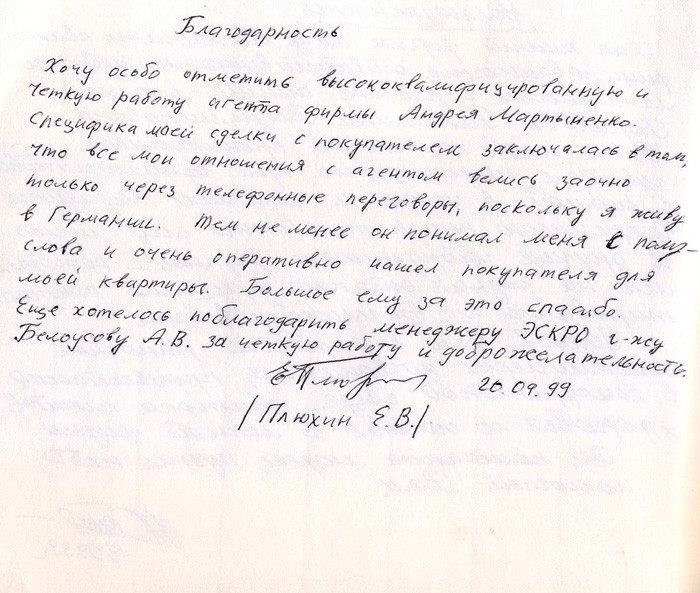 Благодарность
Хочу особо отметить высококвалифицированную и
четкую работу агента фирмы Андрея Мартыненко.
Специфика моей сделки с покупателем заключалась в том,
что все мои отношения с агентом велись заочно
только через телефонные переговоры, поскольку я живу
в Германии. Тем не менее он понимал меня с полу-
слова и очень оперативно нашел покупателя для
моей квартиры. Большое ему за это спасибо.
Еще хотелось поблагодарить менеджеру ЭСКРО г-жу
Белоусову А.В. за четкую работу и доброжелательность.
20.09.99
/Плюхин Е.В./